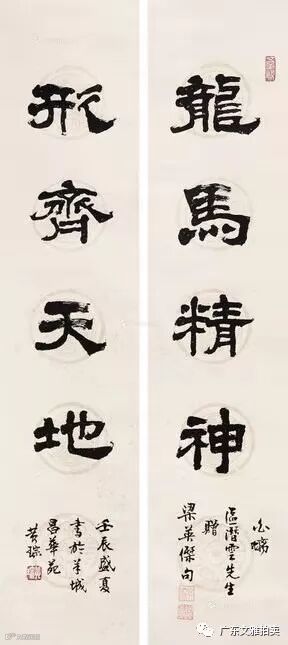 龍馬精神
區潛雲先生
贈
梁英傑句
形齊天地
壬辰盛夏
書於羊城
昌華苑
广东文雅拍卖